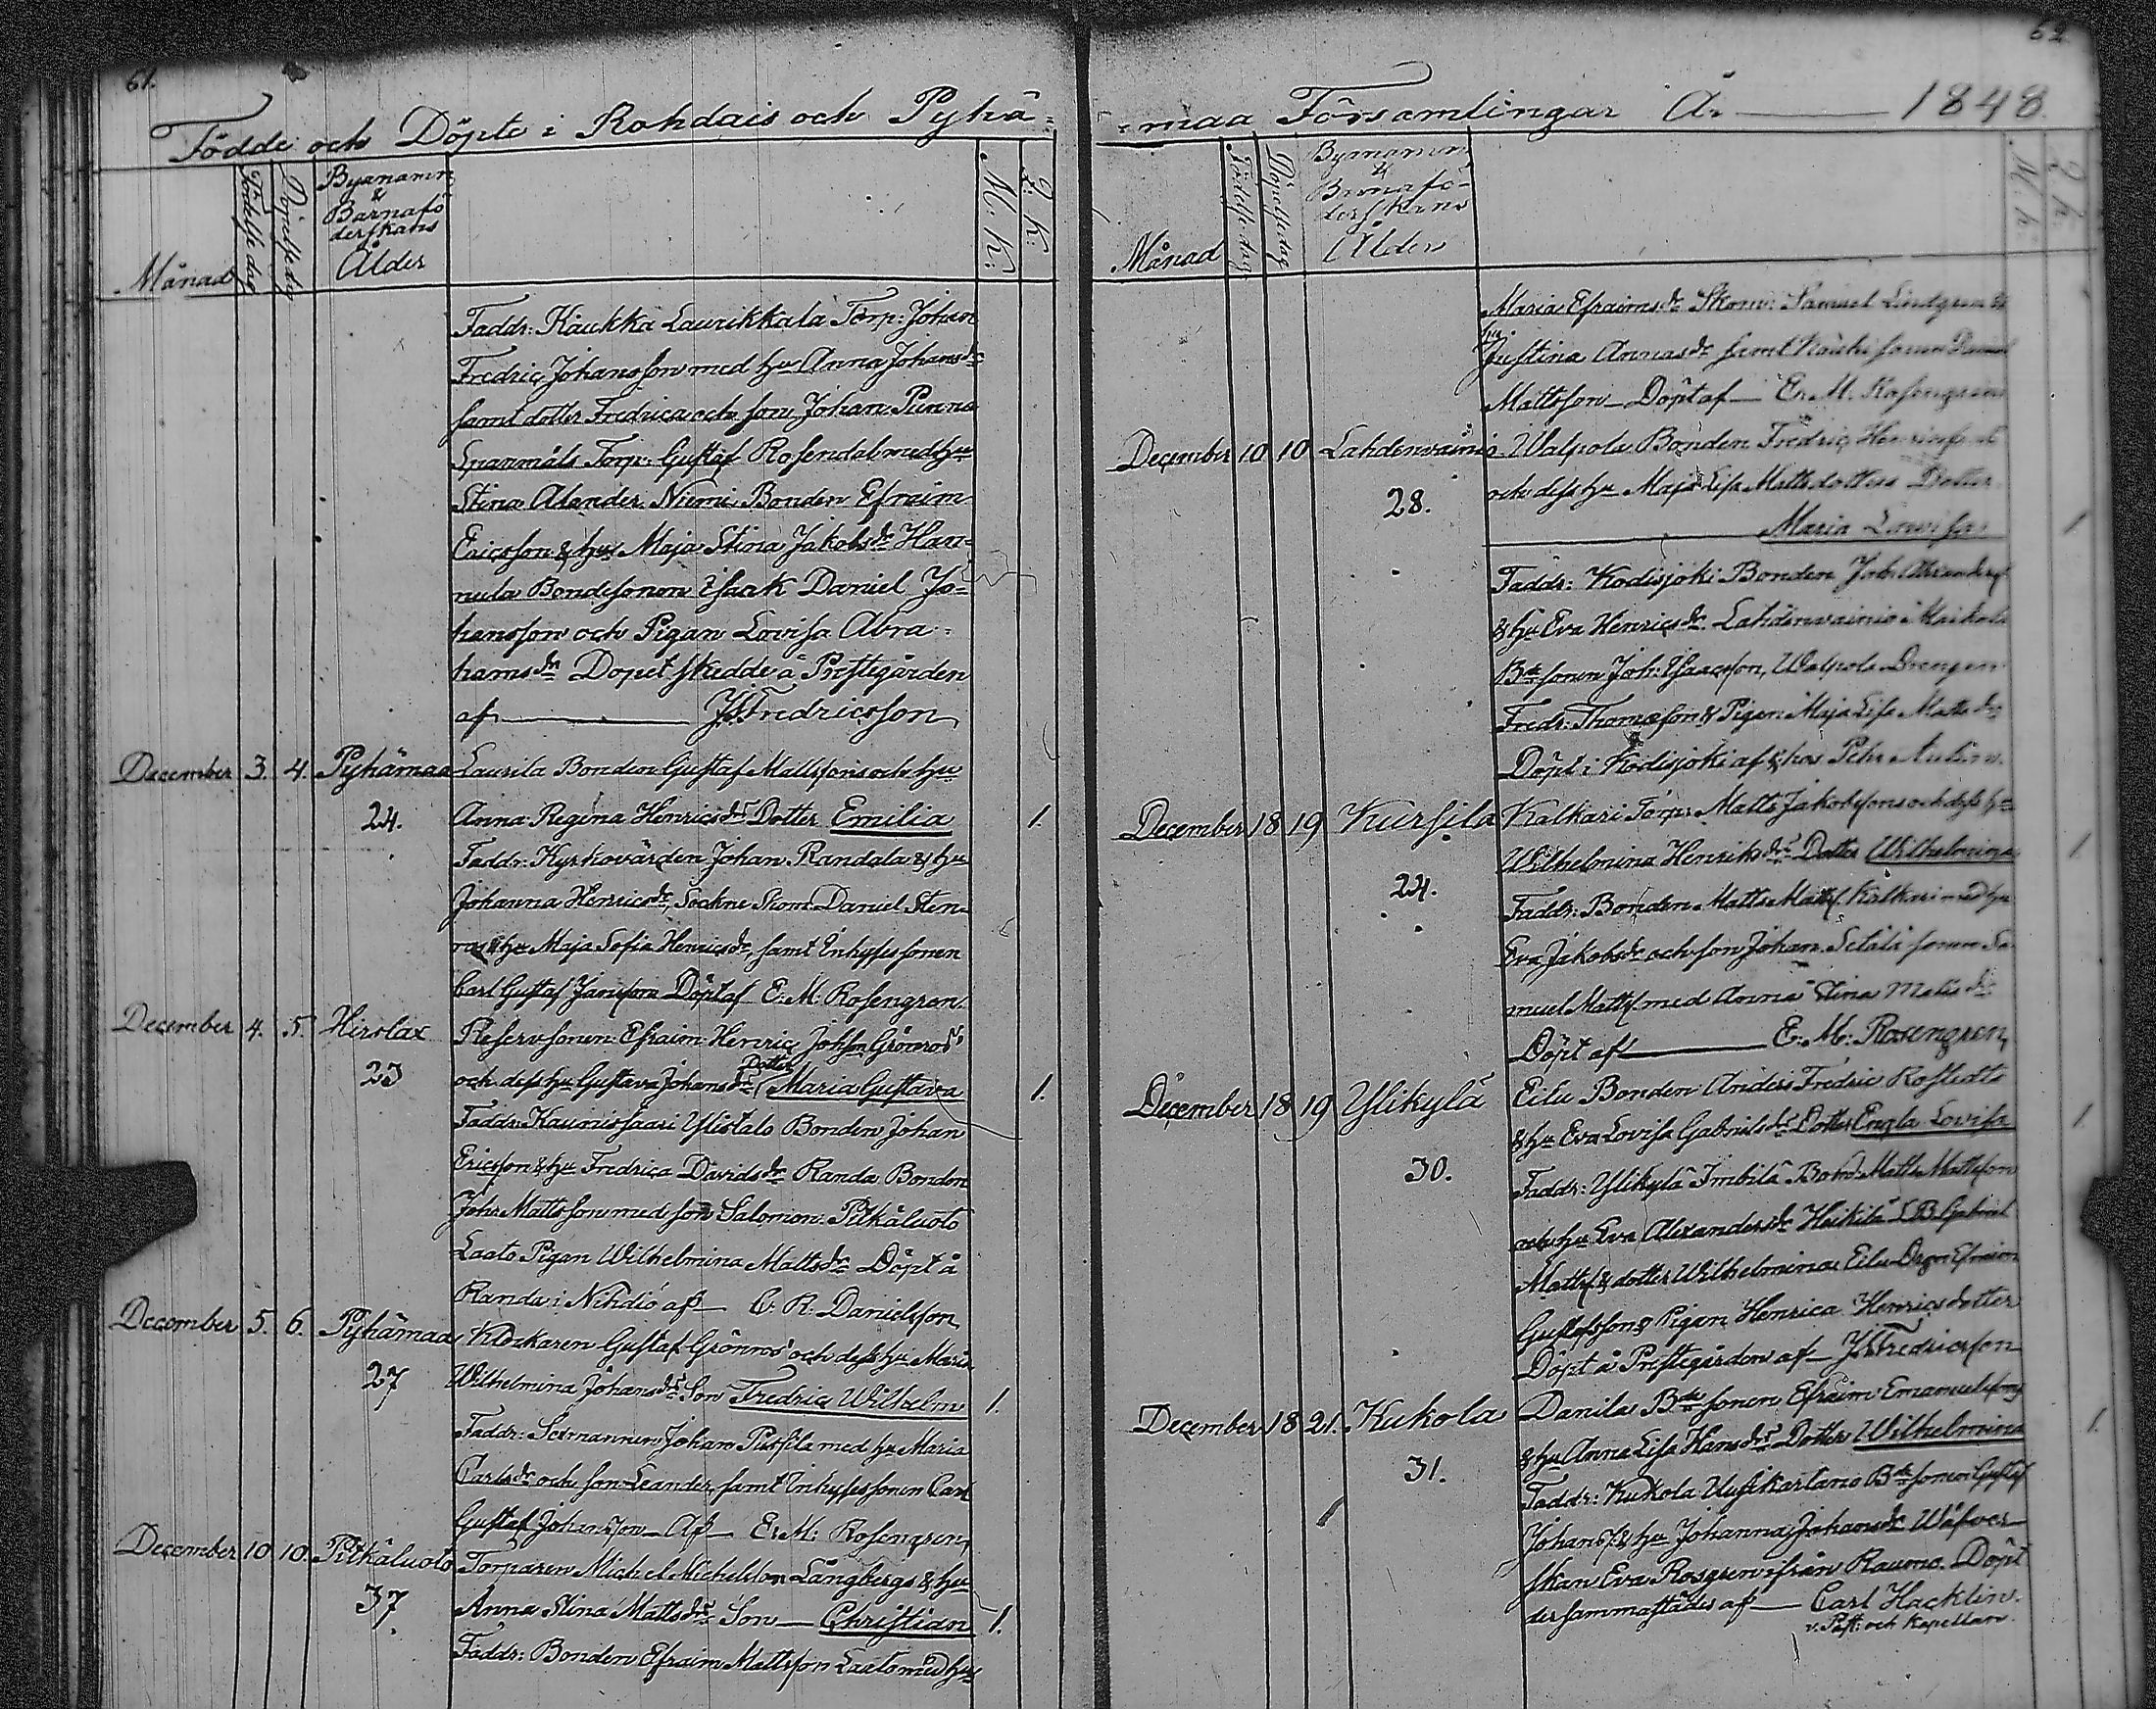 61.
Födde och Döpte i Rohdais och Pyhä=
Månad
Födelse dag
Döpelse dag
Byanamn
&
Barnafö
derskans
Ålder
M. K:
Q: K:
Faddr: Kaukka Laurikkala Torp: Johan
Fredric Johansson med hu Anna Johansdr
samt dotter Fredrica och son Johan Punna
Spanmåls Torp: Gustaf Rosendal med hu
Stina Alander. Niemi Bonden Efraim
Ericsson & hu Maja Stina Jakobsdr Han=
nula Bondesonen Isaak Daniel Jo=
hansson och Pigan Lovisa Abra=
hamsdr Dopet skedde å Prestegården
af J. Fredricsson
December 3. 4. Pyhämaa Laurila Bonden Gustaf Mattssons och hu
24. Anna Regina Henricsdrs Dotter Emilia 1.
Faddr: Kyrkovärden Johan Randala & hu
Johanna Henricsdr, Sockne Skom: Daniel Sten-
roos & hu Maja Sofia Henricsdr, samt Enhysessonen
Carl Gustaf Jansson Döpt af E: M: Rosengren.
December 4. 5. Hirslax Reservsonen Efraim Henric Johsson Grönroos
23 och dess hu Gustava Johansdrs Dotter Maria Gustava 1.
Faddr: Kaunissaari Ylistalo Bonden Johan
Ericsson & hu Fredrica Davidsdr Randa Bonden
Joh: Mattsson med son Salomon. Pitkäluoto
Laato Pigan Wilhelmina Mattsdr Döpt å
Randa i Nihdiö af C. R. Danielsson
December 5. 6. Pyhämaa Klockaren Gustaf Grönroos och dess hu Maria
27 Wilhelmina Johansdrs Son Fredric Wilhelm 1.
Faddr: Johan med hu Maria
Carlsdr och son Leander samt Inhysessonen Carl
Gustaf Johansson Af E: M: Rosengren,
December 10 10. Pitkäluoto Torparen Michel Michelsson Långbergs & hu
37. Anna Stina Mattsdrs Son Christian 1.
Faddr: Bonden Efraim Mattsson Laato med hu
62
=maa Församlingar År 1848
Månad
Födelse dag
Döpelse dag
Bynamn
&
Barnafö-
derskans
Ålder
M. k:
Q. k:
Maria Efraimsdr Skom: Samuel Lindgren &
hu Justina Annasdr samt sonen Daniel
Mattsson Döpt af E: M. Rosengren
December 10 10 Lahdenvainio Walpola Bonden Fredric
28. och dess hu Maja Lisa Mattsdotters Dotter
Maria Lovisa 1
Faddr: Kodisjoki Bonden Joh:
& hu Eva Henricsdr. Lahdenvainio Maikola
Bde sonen Joh: Isaacsson, Walpola Drengen
Fredr: Thomasson & Pigan Maja Lisa Mattsdr
Döpt i Kodisjoki af & hos Pehr
December 18 19 Kursila Kalkari Torp: Matts Jakobssons och dess hu
24. Wilhelmina Henriksdrs Dotter Wilhelmina 1
Faddr: Bonden Matts Mattss. Kalkari med hu
Eva Jakobsdr och son Johan. Setälä sonen Sa-
muel Mattss. med Anna Stina Mattsdr
Döpt af E: M: Rosengren,
December 18 19 Ylikylä Eilu Bonden Anders Fredric Rostedts
30. & hu Eva Lovisa Gabrielsdrs Dotter Engla Lovisa 1
Faddr: Ylikylä Imbilä Bond Matts Mattsson
och hu Eva Alexandersdr Heikilä Gabriel
Mattss. & dotter Wilhelmina Eilu Drgn Efraim
Gustafsson & Pigan Henrica Henricsdotter
Döpt å Prestegården af J. Fredricsson
December 18 21. Kukola Danila Bde sonen Efraim Emanuelssons
31. & hu Anna Lisa Hansdrs Dotter Wilhelmina 1.
Faddr: Kukola Uusikartano Bde sonen Gustaf
Johanss. & hu Johanna Johansdr Wäfver-
skan Eva Rosgren ifrån Raumo. Döpt
dersammastädes af Carl Hacklin.
v. Past: och Kapellan